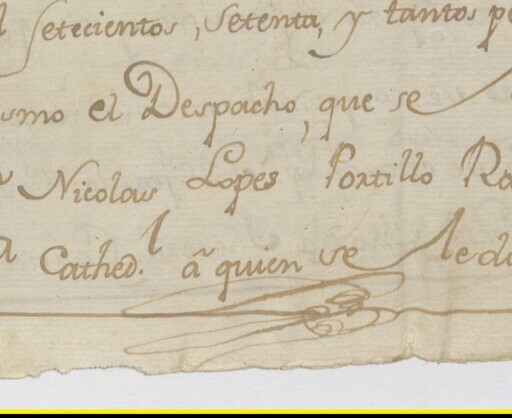 setecientos, setenta, y tantos pe
smo el Despacho, que se
Nicolas Lopes Portillo Ra
Cathed.l â quien se le di